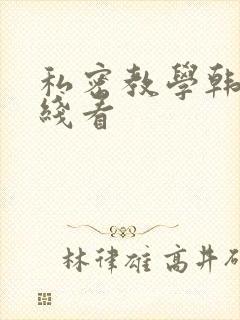 私密教學韩
綫看
林律雄 高井研